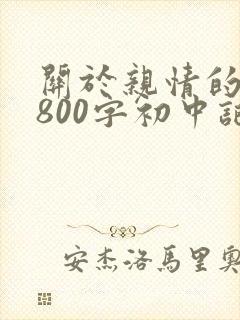 關於親情的
800字初中記
安杰洛馬里奧